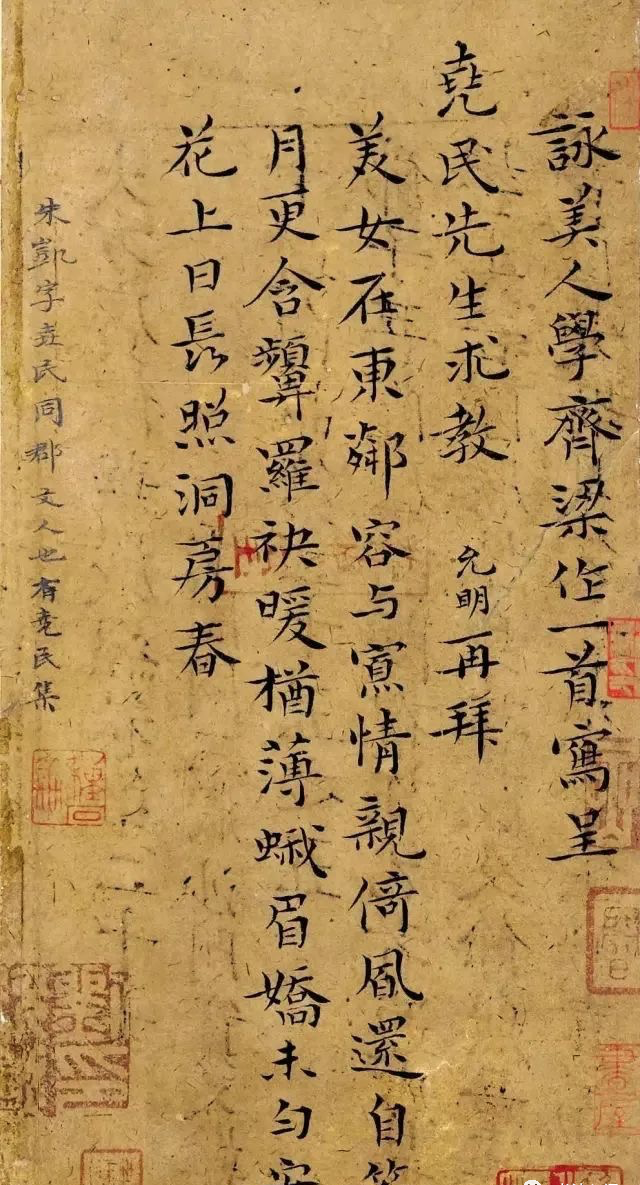 詠美人學齊梁作一首寫呈
堯民先生求教 允明再拜
美女在東鄰容与情親倚風還自
月更含顰羅袂暖猶薄蛾眉嬌未匀
花上日長照洞房春
朱凱字堯民同郡文人也有堯民集
書屋